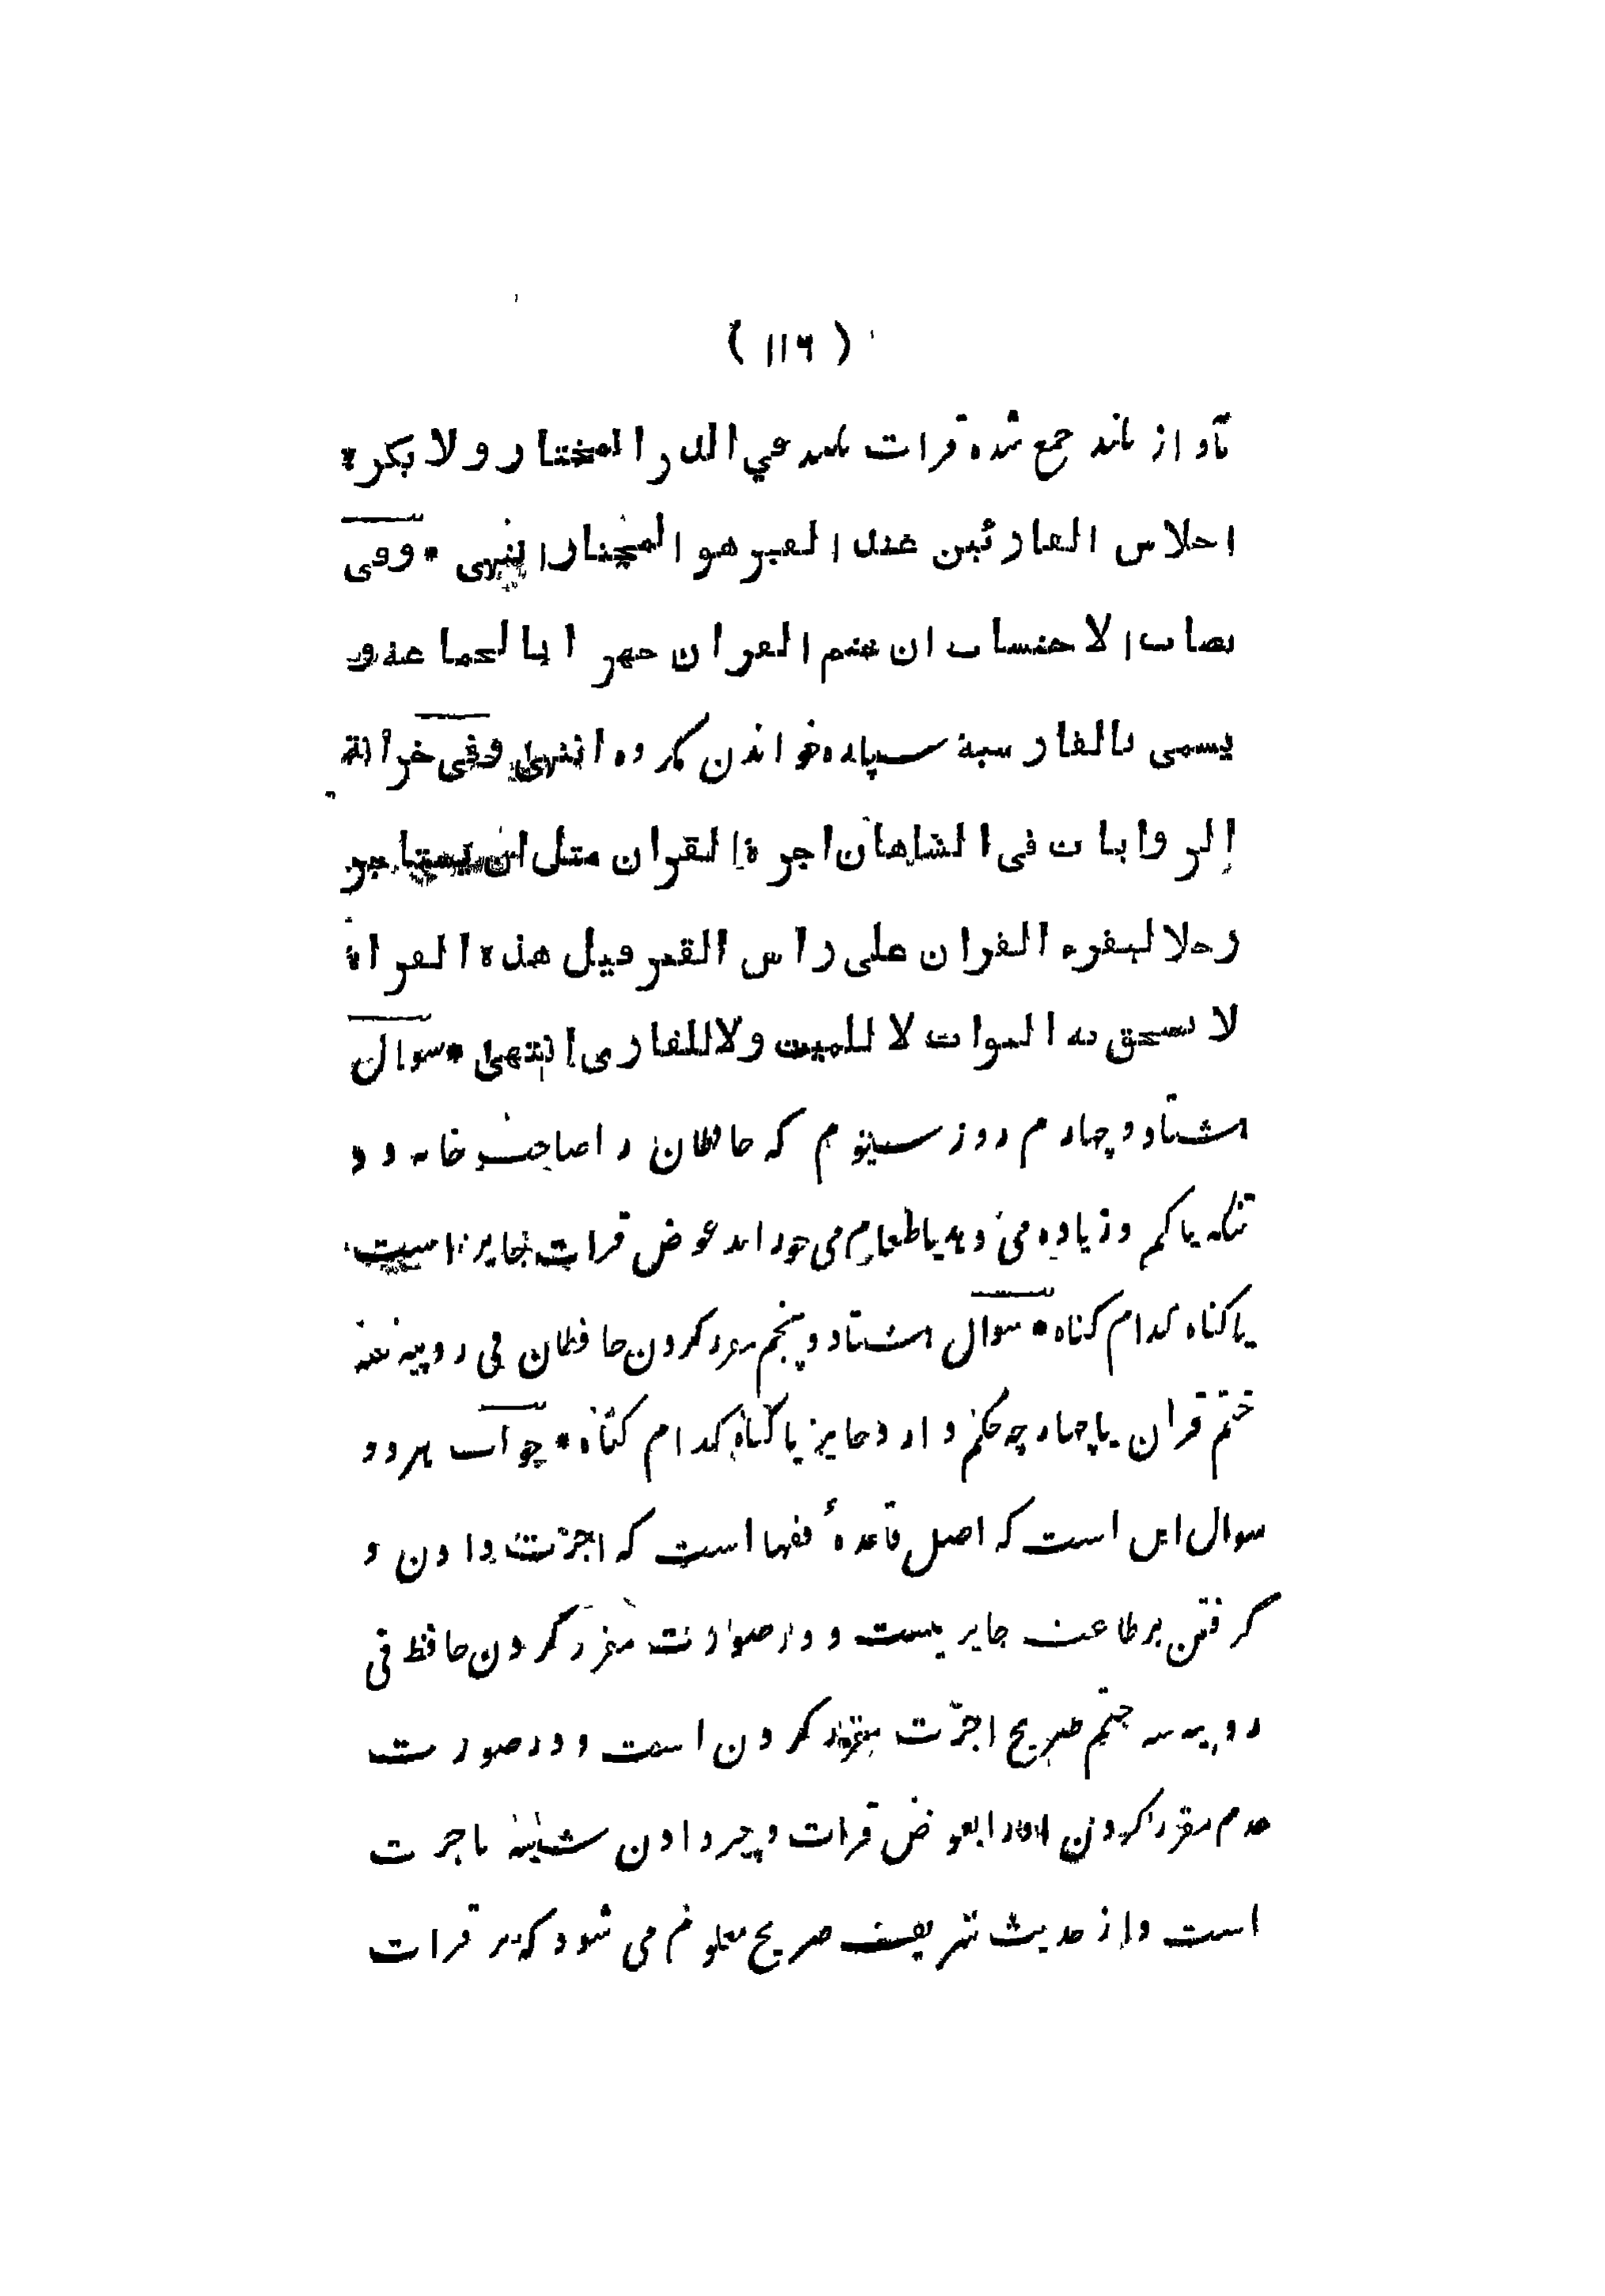 ( ۱۱۶ )
تاواز بلند جمع شده قرات کنند في الدر المختار ولا يكره
اجلاس القارئين عند القبر هو المختار انتهى * وفى
نصاب الاحتساب ان ختم القران جهرا بالجماعة و
يسمى بالفارسية سپاره خواندن مکروه انتهى وفى خزانة
الروايات فى الشاهان اجرة القران مثل ان يستاجر
رجلا ليقرء القران على راس القبر قيل هذه القراة
لا يستحق به الثواب لا للميت ولا للقارى انتهى * سوال
هشتاد و چهارم روز سیوم که حافظان را صاحب خانه دو
تنکه یا کم و زیاده می دهد یا طعام می خوراند عوض قرات جایز است
یا کناه کدام کناه * سوال هشتاد و پنجم مقرر کردن حافظان فی روپیه سه
ختم قران یا چهار چه حکم دارد جایز یا کناه کدام کناه * جواب هر دو
سوال این است که اصل قاعدهٔ فقها است که اجرت دادن و
کرفتن بر طاعت جایز نیست و در صورت مقرر کردن حافظ فی
روپیه سه ختم صریح اجرت مقرر کردن است و در صورت
عدم مقرر کردن بعوض قرات و چیز دادن شبیه باجرت
است و از حدیث شریف صریح معلوم می شود که بر قرات